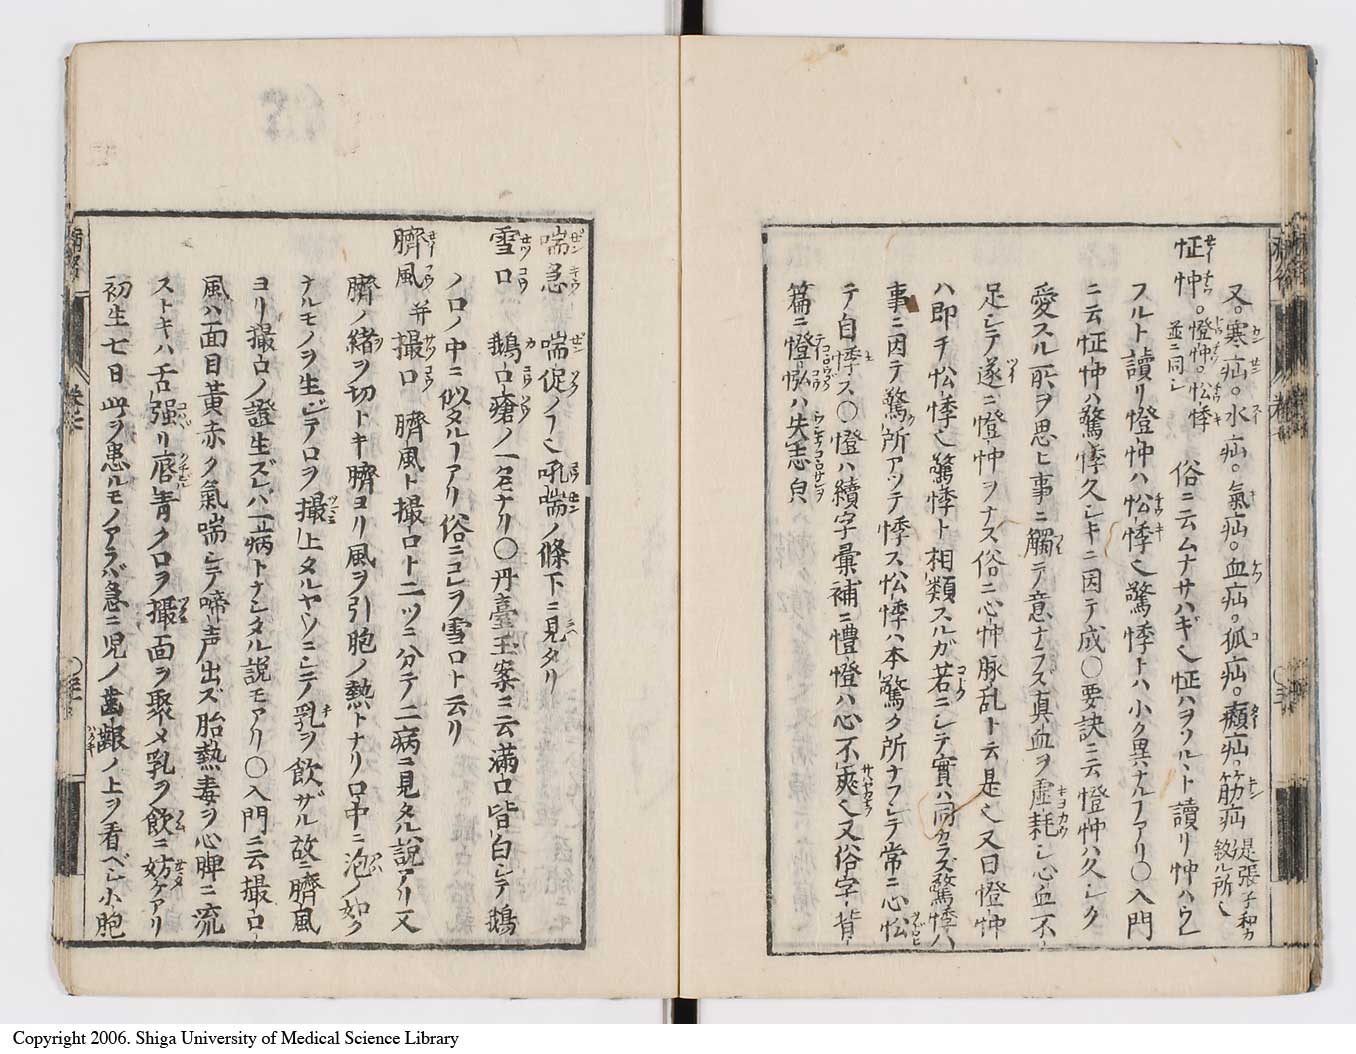 又。寒疝。水疝。氣疝。血疝。狐疝。癩疝。筋疝 是張子和カ敘ル所也
怔忡。𢥞忡。忪悸 並ニ同シ 俗ニ云ムナサハギ也怔ハヲソルト讀リ忡ハウレ
フルト讀リ𢥞忡ハ忪悸也驚悸トハ小ク異ナルヿアリ〇入門
ニ云怔忡ハ驚悸久シキニ因テ成〇要訣ニ云𢥞忡ハ久シク
愛スル所ヲ思ヒ事ニ觸テ意ナラズ真血ヲ虚耗シ心血不
足シテ遂ニ𢥞忡ヲナス俗ニ心忡脉乱ト云是也又曰𢥞忡
ハ即チ忪悸也驚悸ト相類スルガ若ニシテ實ハ同カラズ驚悸ハ
事ニ因テ驚所アツテ悸ス忪悸ハ本驚ク所ナフシテ常ニ心忪
テ自悸ス〇𢥞ハ續字彙補ニ懵𢥞ハ心不爽也又俗字背
篇ニ𢥞㤨ハ失志皃
喘急 喘促ノヿ也吼喘ノ條下ニ見タリ
雪口 鵝口瘡ノ一名ナリ〇丹臺玉案ニ云滿口皆白シテ鵝
ノ口ノ中ニ似タルヿアリ俗ニコレヲ雪口ト云リ
臍風并撮口 臍風ト撮口ト二ツニ分テ二病ニ見タル説アリ又
臍ノ緒ヲ切トキ臍ヨリ風ヲ引胞ノ熱トナリ口中ニ泡ノ如ク
ナルモノヲ生シテ口ヲ撮上タルヤウニシテ乳ヲ飲ザル故ニ臍風
ヨリ撮口ノ證生ズレバ一病トナシタル説モアリ〇入門ニ云撮口
風ハ面目黃赤ク氣喘シテ啼声出ズ胎熱毒ヲ心脾ニ流
ストキハ舌强リ唇靑ク口ヲ撮面ヲ聚メ乳ヲ飲ニ妨ケアリ
初生七日此ヲ患ルモノアラバ急ニ児ノ齒齦ノ上ヲ看ベシ小胞
Copyright 2006. Shiga University of Medical Science Library